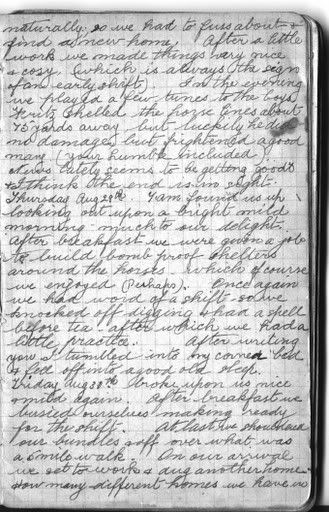 naturally so we had to fuss about &
find a new home After a little
work we made things very nice
& cosy (which is always the sign
of an early shift) In the evening
we played a few tunes to the boys
Fritz shelled the horse lines about
75 yards away but luckily he did
no damage, but frightened a good
many (your humble included)
News lately seems to be getting good &
I think the end is in sight.
Thursday Aug 29th 7am found us up
looking out upon a bright mild
morning much to our delight.
After breakfast we were given a job
to build bomb proof shelters
around the horses which of course
we enjoyed (Perhaps). Once again
we had word of a shift so we
knocked off digging & had a spell
before tea after which we had a
little practice. After writing
you I tumbled into my corner bed
& fell off into a good old sleep.
Friday Aug 30th broke upon us nice
& mild again. After breakfast we
busied ourselves making ready
for the shift. At last we shouldered
our bundles & off over what was
a 5 mile walk. On our arrival
we set to work & dug another home
& how many different homes we have in